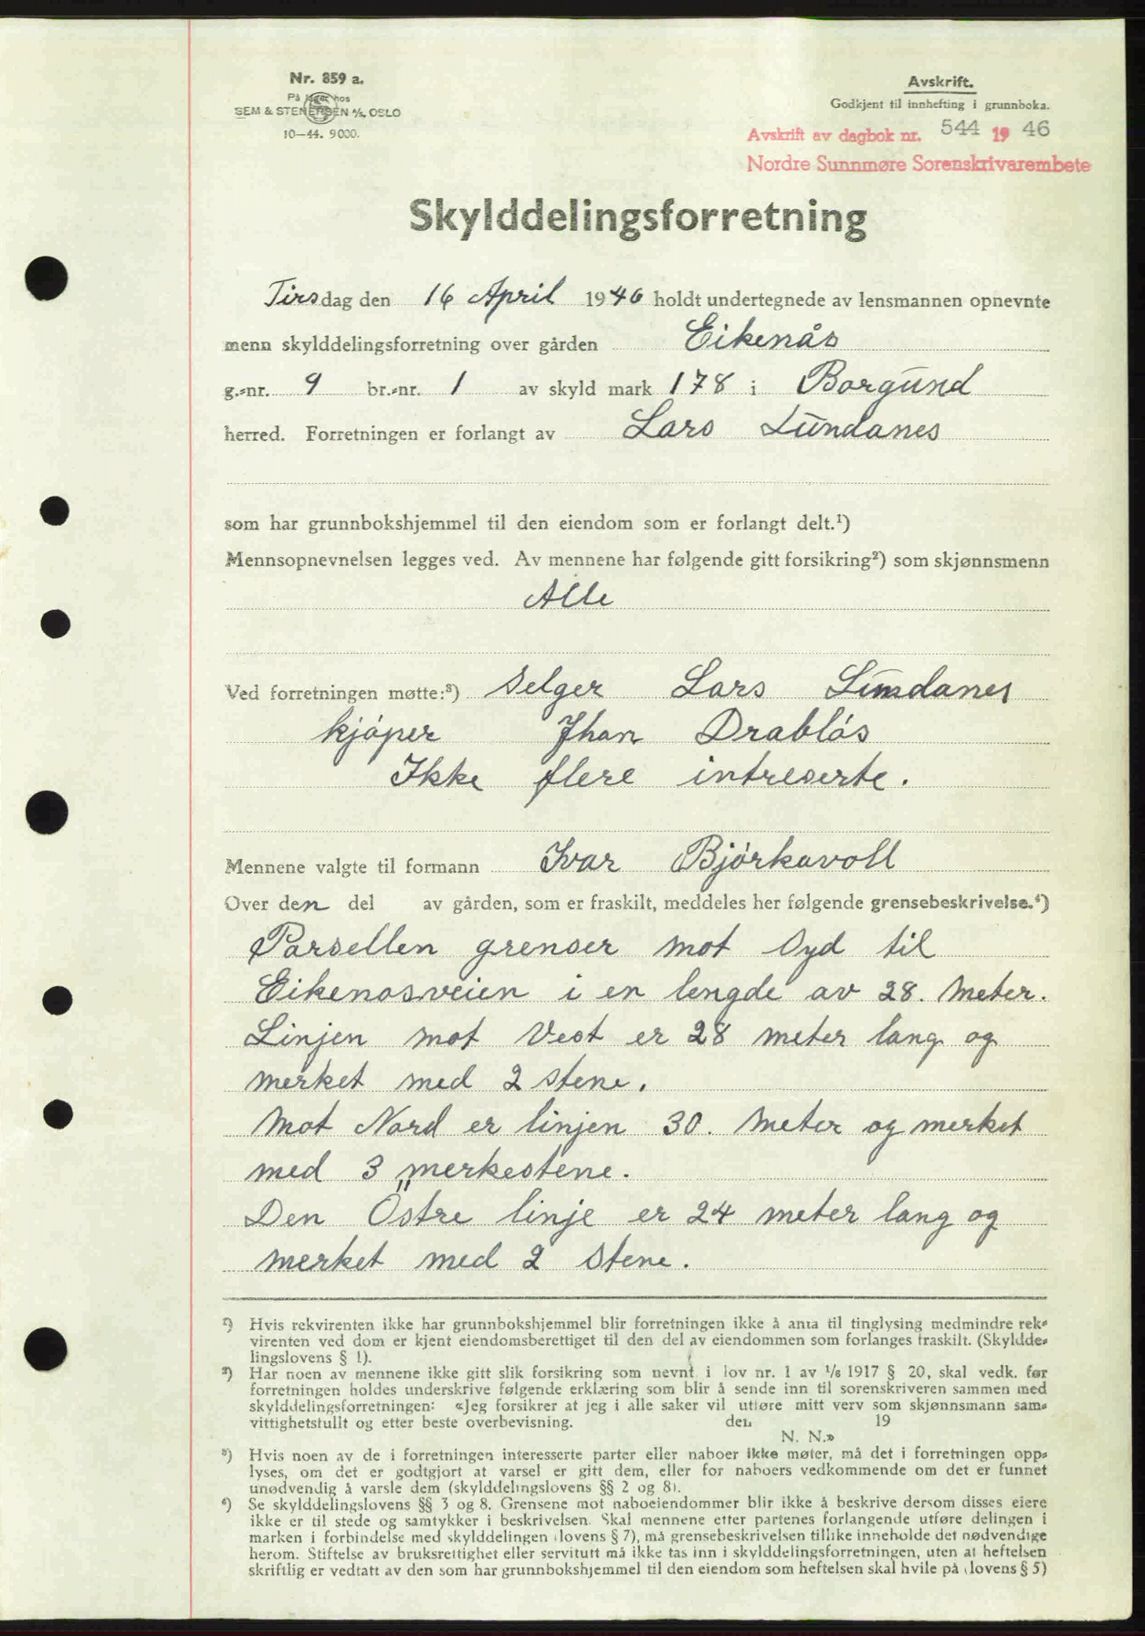 Nr. 859 a.
På lager hos
SEM & STENERSEN A/S, OSLO
10—44. 9000.
Avskrift.
Godkjent til innhefting i grunnboka.
Avskrift av dagbok nr. 544 19 46
Nordre Sunnmøre Sorenskrivarembete
Skylddelingsforretning
Tirsdag den 16 April 1946 holdt undertegnede av lensmannen opnevnte
menn skylddelingsforretning over gården Eikenås
g.-nr. 9 br.-nr. 1 av skyld mark 178 i Borgund
herred. Forretningen er forlangt av Lars Lundanes
som har grunnbokshjemmel til den eiendom som er forlangt delt.¹)
Mennsopnevnelsen legges ved. Av mennene har følgende gitt forsikring²) som skjønnsmenn
Alle
Ved forretningen møtte:³) Selger Lars Lundanes
kjöper Jhan Drablös
Ikke flere intreserte.
Mennene valgte til formann Ivar Björkavoll
Over den del av gården, som er fraskilt, meddeles her følgende grensebeskrivelse.⁴)
Parsellen grenser mot Syd til
Eikenosveien i en lengde av 28. meter.
Linjen mot Vest er 28 meter lang og
merket med 2 stene.
Mot Nord er linjen 30. meter og merket
med 3 merkestene.
Den Östre linje er 24 meter lang og
merket med 2 stene.
¹) Hvis rekvirenten ikke har grunnbokshjemmel blir forretningen ikke å anta til tinglysing medmindre rek-
virenten ved dom er kjent eiendomsberettiget til den del av eiendommen som forlanges fraskilt. (Skyldde-
lingslovens § 1).
²) Har noen av mennene ikke gitt slik forsikring som nevnt i lov nr. 1 av 1/6 1917 § 20, skal vedk. før
forretningen holdes underskrive følgende erklæring som blir å sende inn til sorenskriveren sammen med
skylddelingsforretningen: «Jeg forsikrer at jeg i alle saker vil utføre mitt verv som skjønnsmann sam-
vittighetsfullt og etter beste overbevisning. den 19
N. N.»
³) Hvis noen av de i forretningen interesserte parter eller naboer ikke møter, må det i forretningen opp-
lyses, om det er godtgjort at varsel er gitt dem, eller for naboers vedkommende om det er funnet
unødvendig å varsle dem (skylddelingslovens §§ 2 og 8).
⁴) Se skylddelingslovens §§ 3 og 8. Grensene mot naboeiendommer blir ikke å beskrive dersom disses eiere
ikke er til stede og samtykker i beskrivelsen. Skal mennene etter partenes forlangende utføre delingen i
marken i forbindelse med skylddelingen (lovens § 7), må grensebeskrivelsen tillike inneholde det nødvendige
herom. Stiftelse av bruksrettighet eller servitutt må ikke tas inn i skylddelingsforretningen, uten at heftelsen
skriftlig er vedtatt av den som har grunnbokshjemmel til den eiendom som heftelsen skal hvile på (lovens § 5)